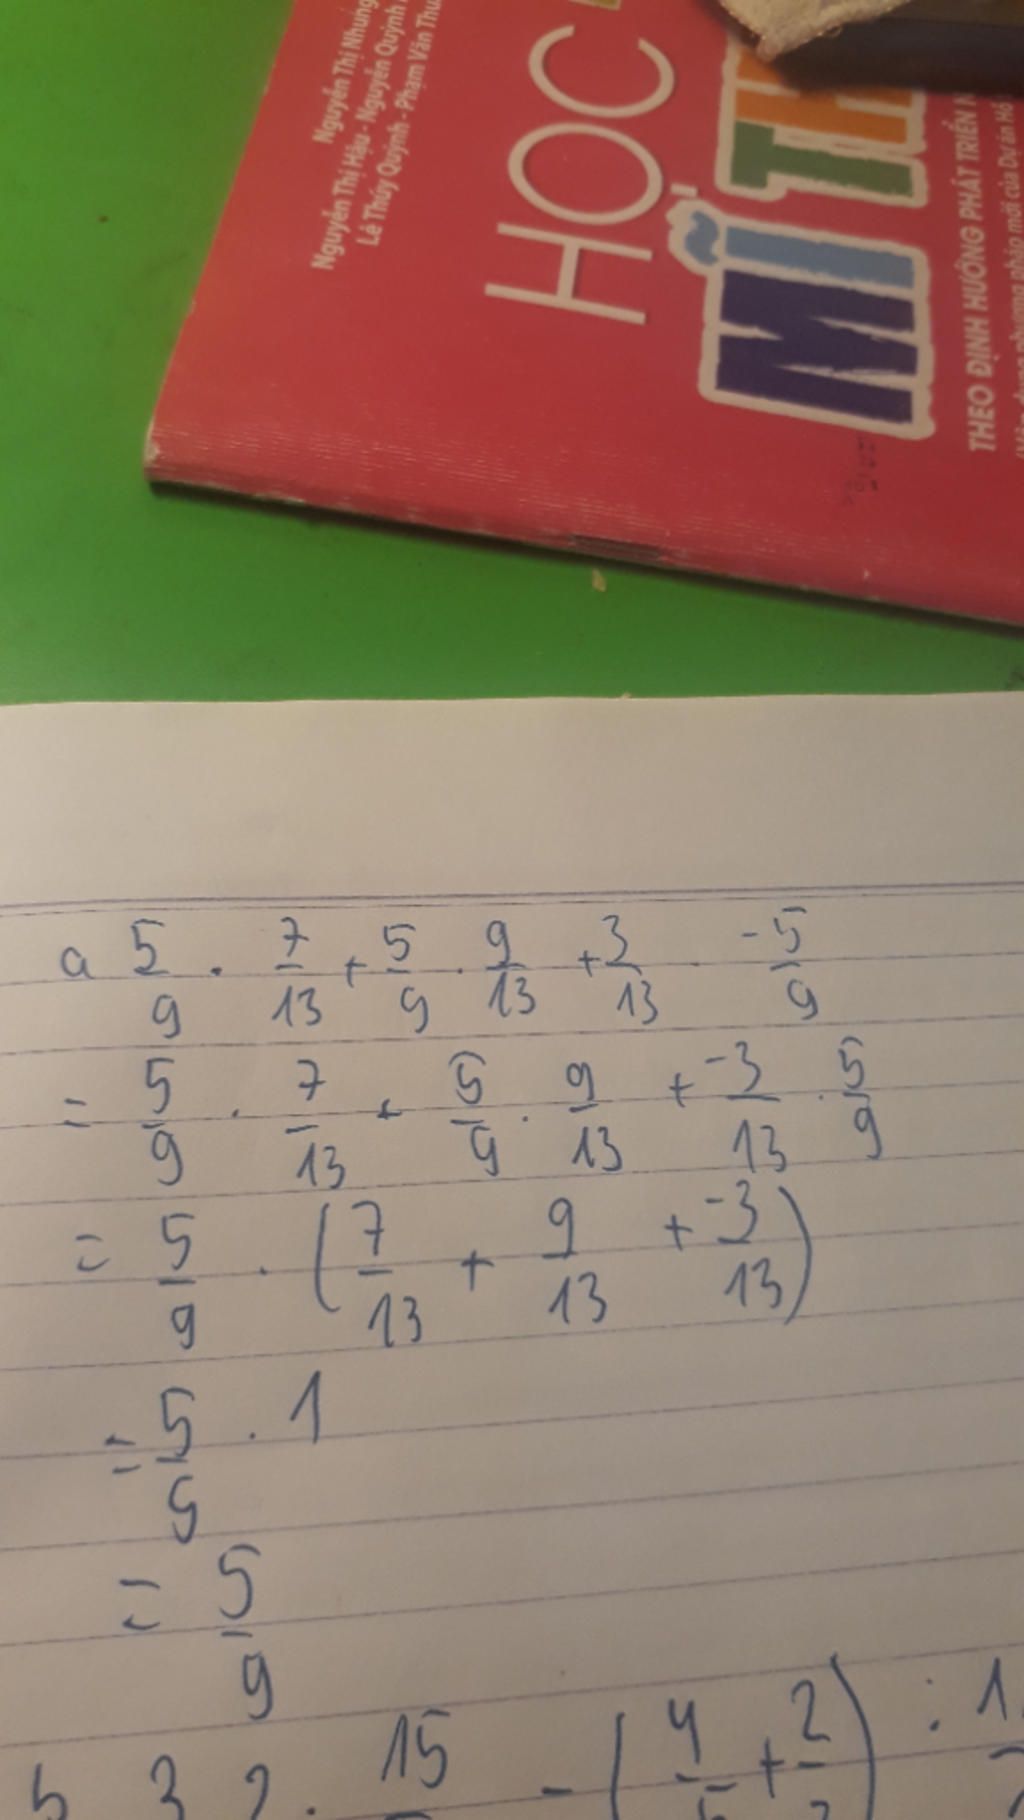 Nguyễn Thị Nhung
Nguyễn Thị Hậu - Nguyễn Quỳnh
Lê Thúy Quỳnh - Phạm Văn Thu
HỌC
MĨ TH
THEO ĐỊNH HƯỚNG PHÁT TRIỂN N
phương pháp mới của Dự án Hỗ
a 5/9 . 7/13 + 5/9 . 9/13 + 3/13 . -5/9
= 5/9 . 7/13 + 5/9 . 9/13 + -3/13 . 5/9
= 5/9 . (7/13 + 9/13 + -3/13)
= 5/9 . 1
= 5/9
b 3 2 . 15 - (4/5 + 2/3) : 1